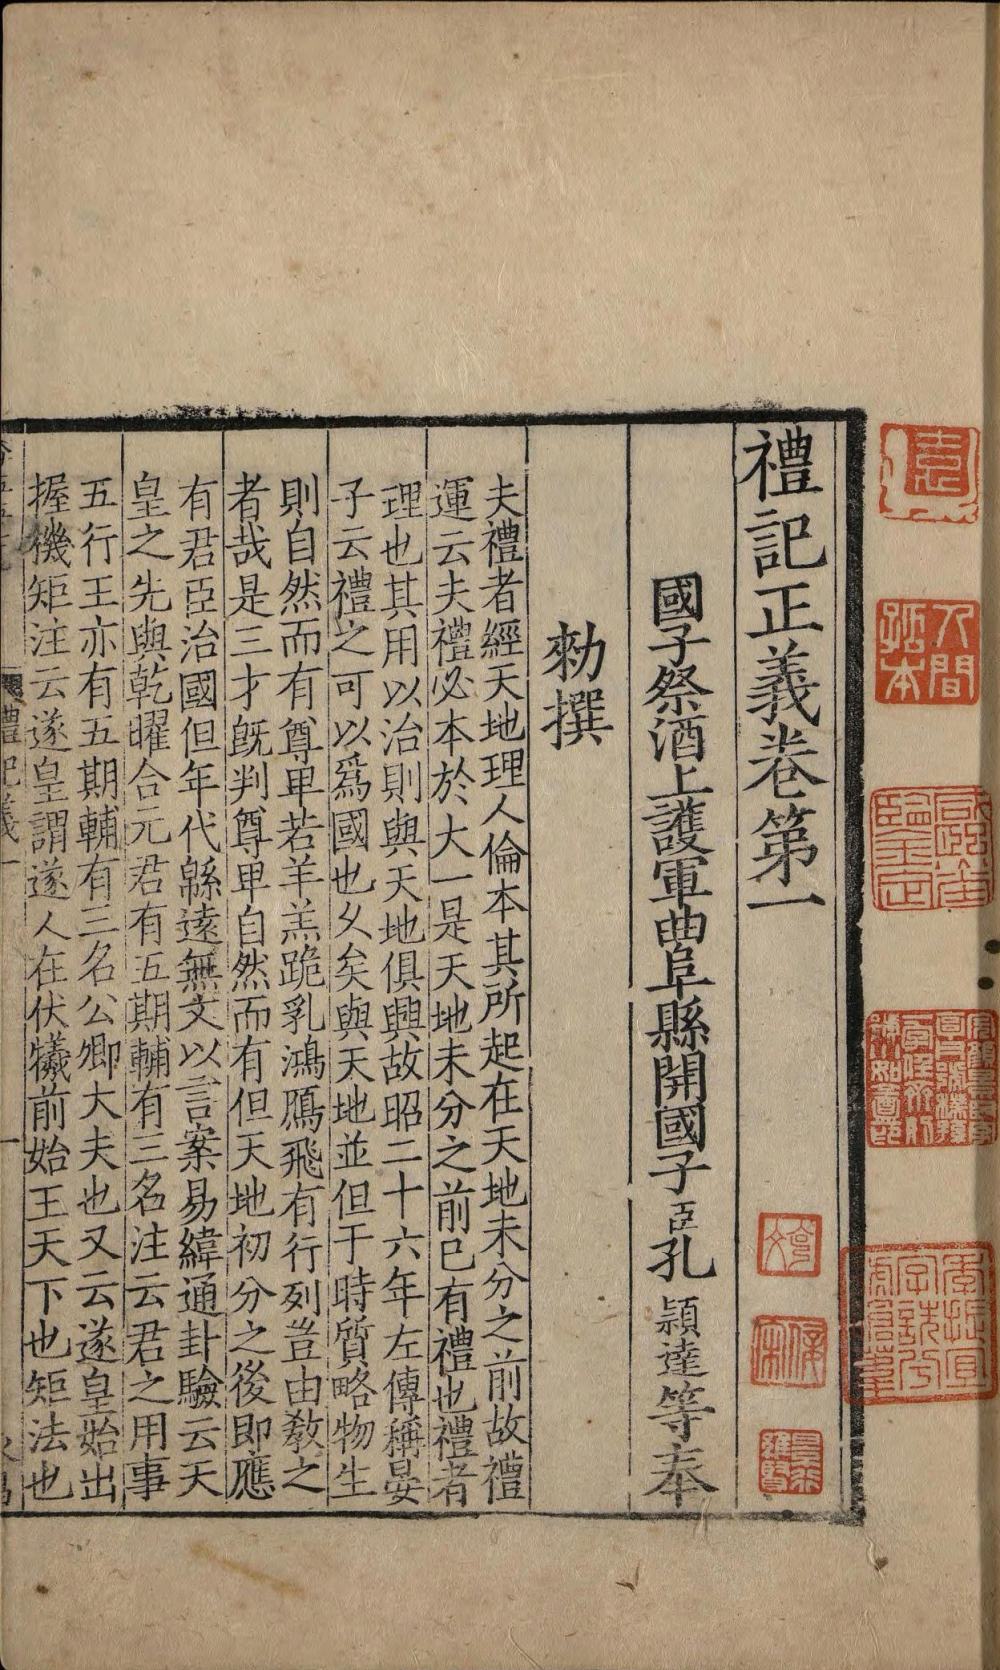 禮記正義卷第一
國子祭酒上護軍曲阜縣開國子臣孔穎達等奉
勑撰
夫禮者經天地理人倫本其所起在天地未分之前故禮
運云夫禮必本於大一是天地未分之前已有禮也禮者
理也其用以治則與天地俱興故昭二十六年左傳稱晏
子云禮之可以爲國也久矣與天地並但于時質略物生
則自然而有尊卑若羊羔跪乳鴻鴈飛有行列豈由敎之
者哉是三才旣判尊卑自然而有但天地初分之後即應
有君臣治國但年代緜遠無文以言案易緯通卦驗云天
皇之先與乾曜合元君有五期輔有三名注云君之用事
五行王亦有五期輔有三名公卿大夫也又云遂皇始出
握機矩注云遂皇謂遂人在伏犧前始王天下也矩法也
禮記義一
一
人間孤本
景行維賢